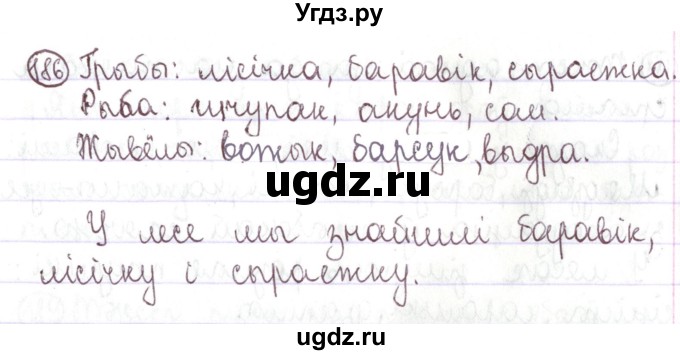 Угдз.ру
186 Грыбы: лісічка, баравік, сыраежка.
Рыба: шчупак, акунь, сом.
Жывёлы: вожык, барсук, выдра.
ugdz.ru
У лесе мы знайшлі баравік,
лісічку і сыраежку.
ugdz.ru